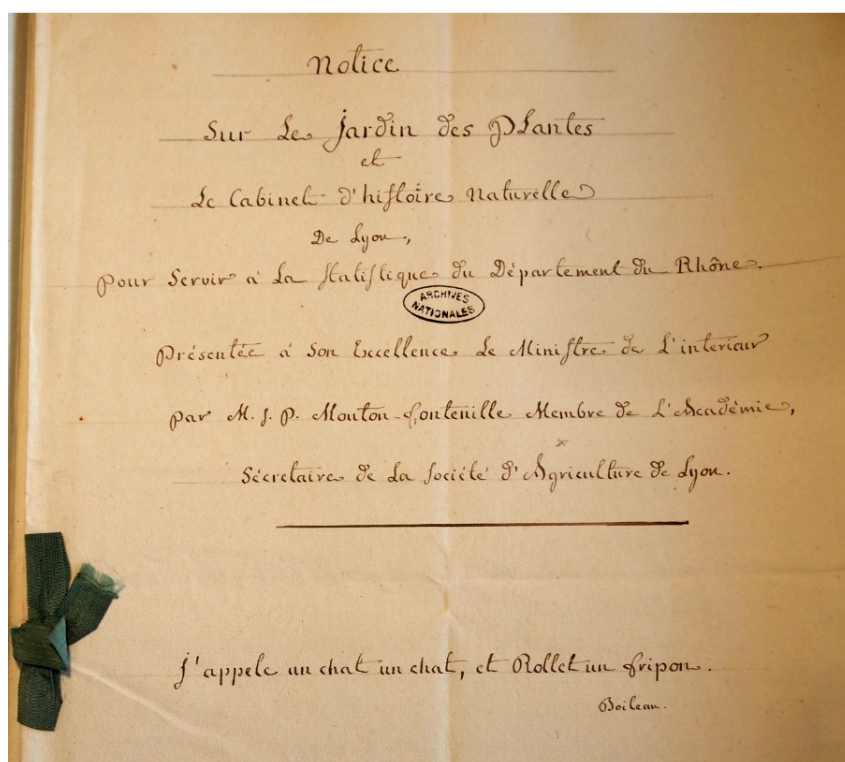 Notice
Sur Le Jardin des Plantes
et
Le Cabinet d'histoire Naturelle
De Lyon,
pour Servir à La Statistique du Département du Rhône.
ARCHIVES
NATIONALES
Présentée à Son Excellence Le Ministre de L'interieur
par M. J. P. Mouton-Fontenille Membre de L'Académie,
Sécretaire de La Société d'Agriculture de Lyon.
J'appele un chat un chat, et Rollet un fripon.
Boileau.